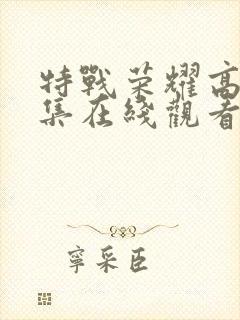 特戰荣耀高
集在綫觀看
寧采臣